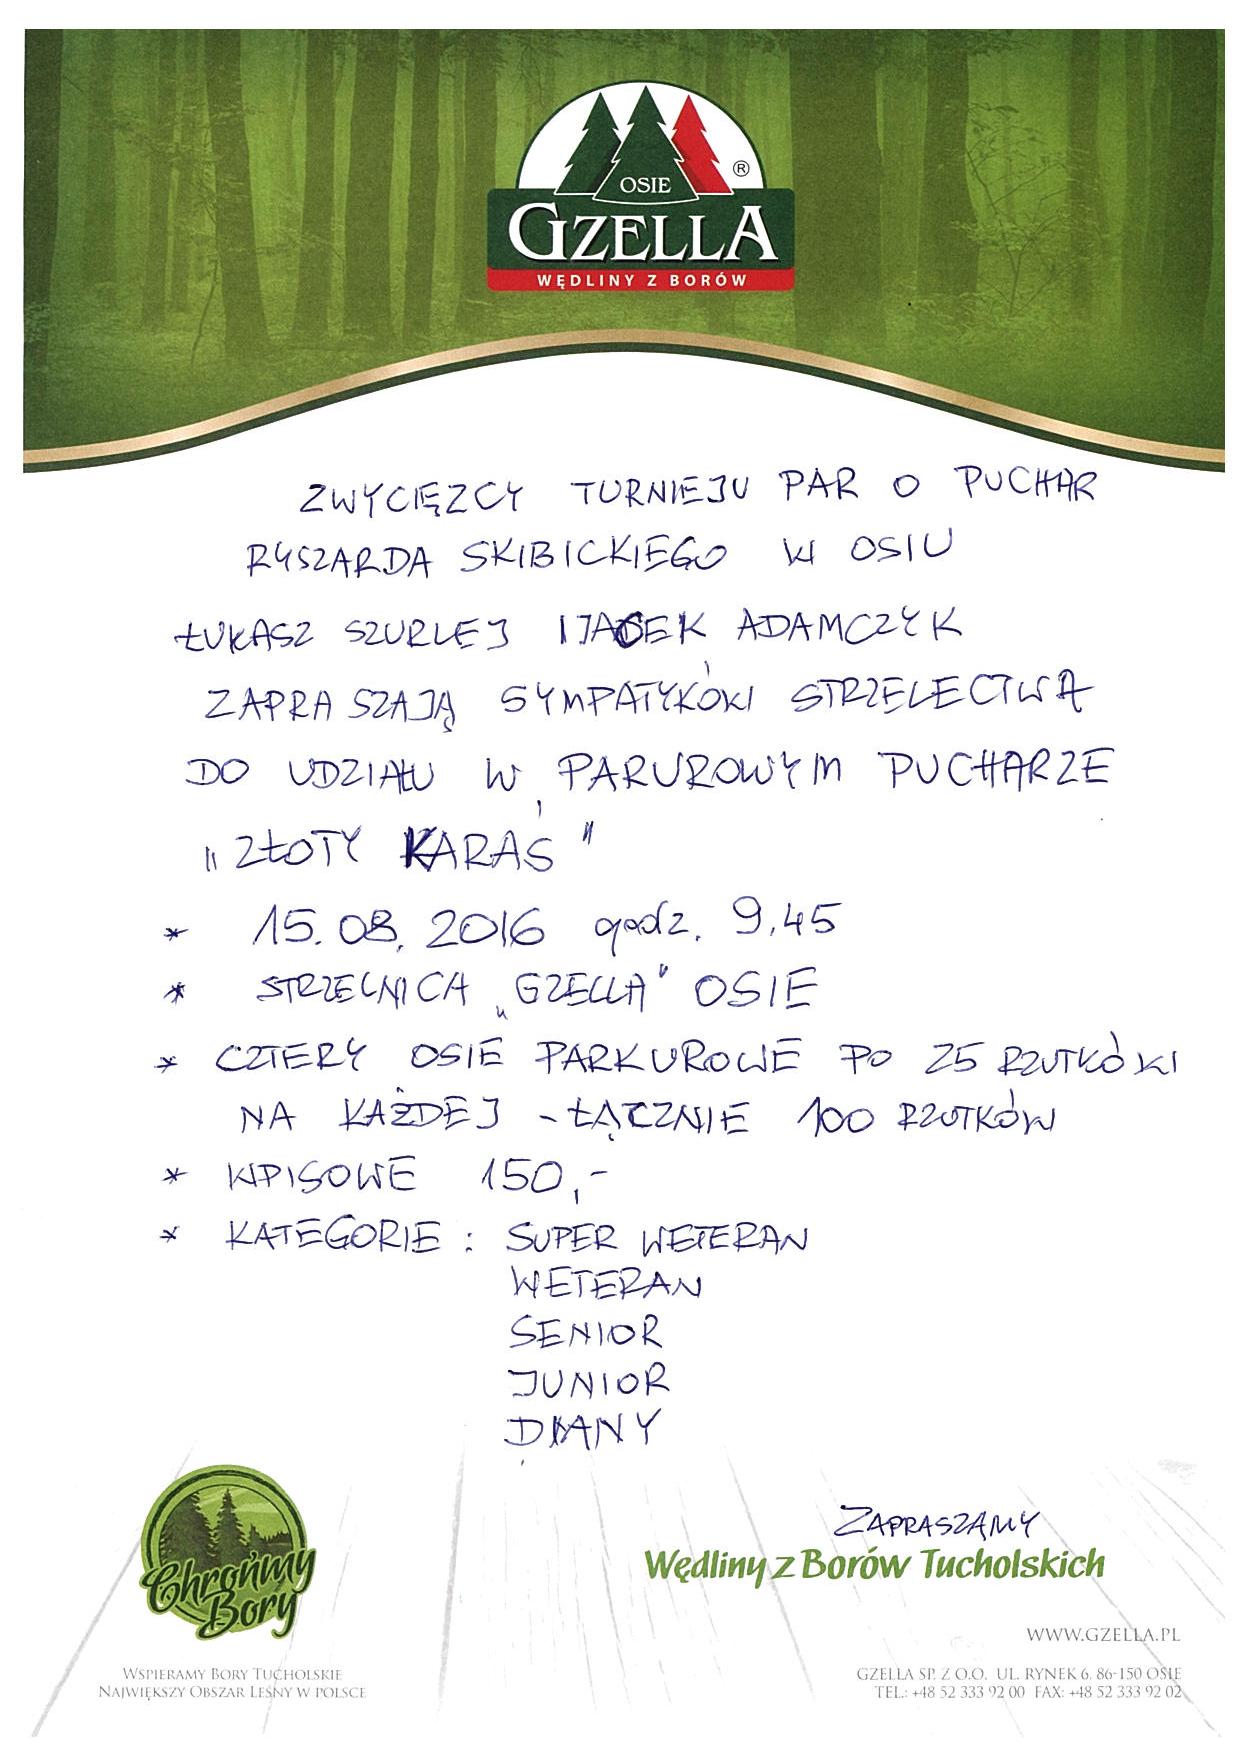 OSIE
®
GZELLA
WĘDLINY Z BORÓW
ZWYCIĘZCY TURNIEJU PAR O PUCHAR
RYSZARDA SKIBICKIEGO W OSIU
ŁUKASZ SZURLEJ I JACEK ADAMCZYK
ZAPRASZAJĄ SYMPATYKÓW STRZELECTWA
DO UDZIAŁU W PARUROWYM PUCHARZE
„ZŁOTY KARAŚ"
* 15.08.2016 godz. 9.45
* STRZELNICA „GZELLA" OSIE
* CZTERY OSIE PARKUROWE PO 25 RZUTKÓW
NA KAŻDEJ - ŁĄCZNIE 100 RZUTKÓW
* WPISOWE 150,-
* KATEGORIE : SUPER WETERAN
WETERAN
SENIOR
JUNIOR
DIANY
ZAPRASZAMY
Wędliny z Borów Tucholskich
Chrońmy
Bory
WWW.GZELLA.PL
WSPIERAMY BORY TUCHOLSKIE
NAJWIĘKSZY OBSZAR LEŚNY W POLSCE
GZELLA SP. Z O.O. UL. RYNEK 6, 86-150 OSIE
TEL.: +48 52 333 92 00 FAX: +48 52 333 92 02